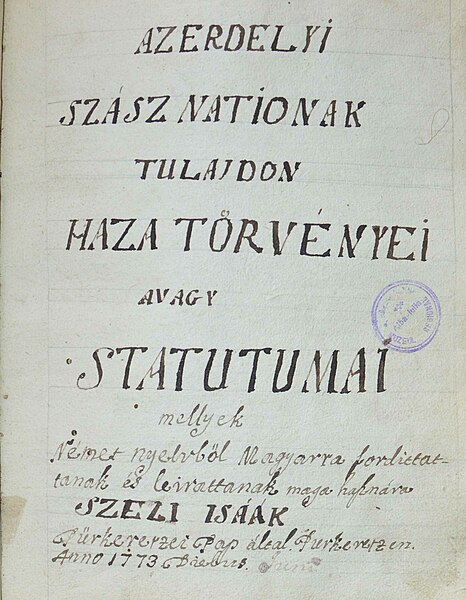 AZ ERDELYI
SZÁSZ NATIONAK
TULAJDON
HAZA TÖRVÉNYEI
AVAGY
STATUTUMAI
mellyek
Német nyelvből Magyarra fordittat-
tanak és leirattanak maga hasznára
SZELI ISÁÁK
Türkeveszei Pap által. Türkeveszen.
Anno 1773 Diebus. Junii